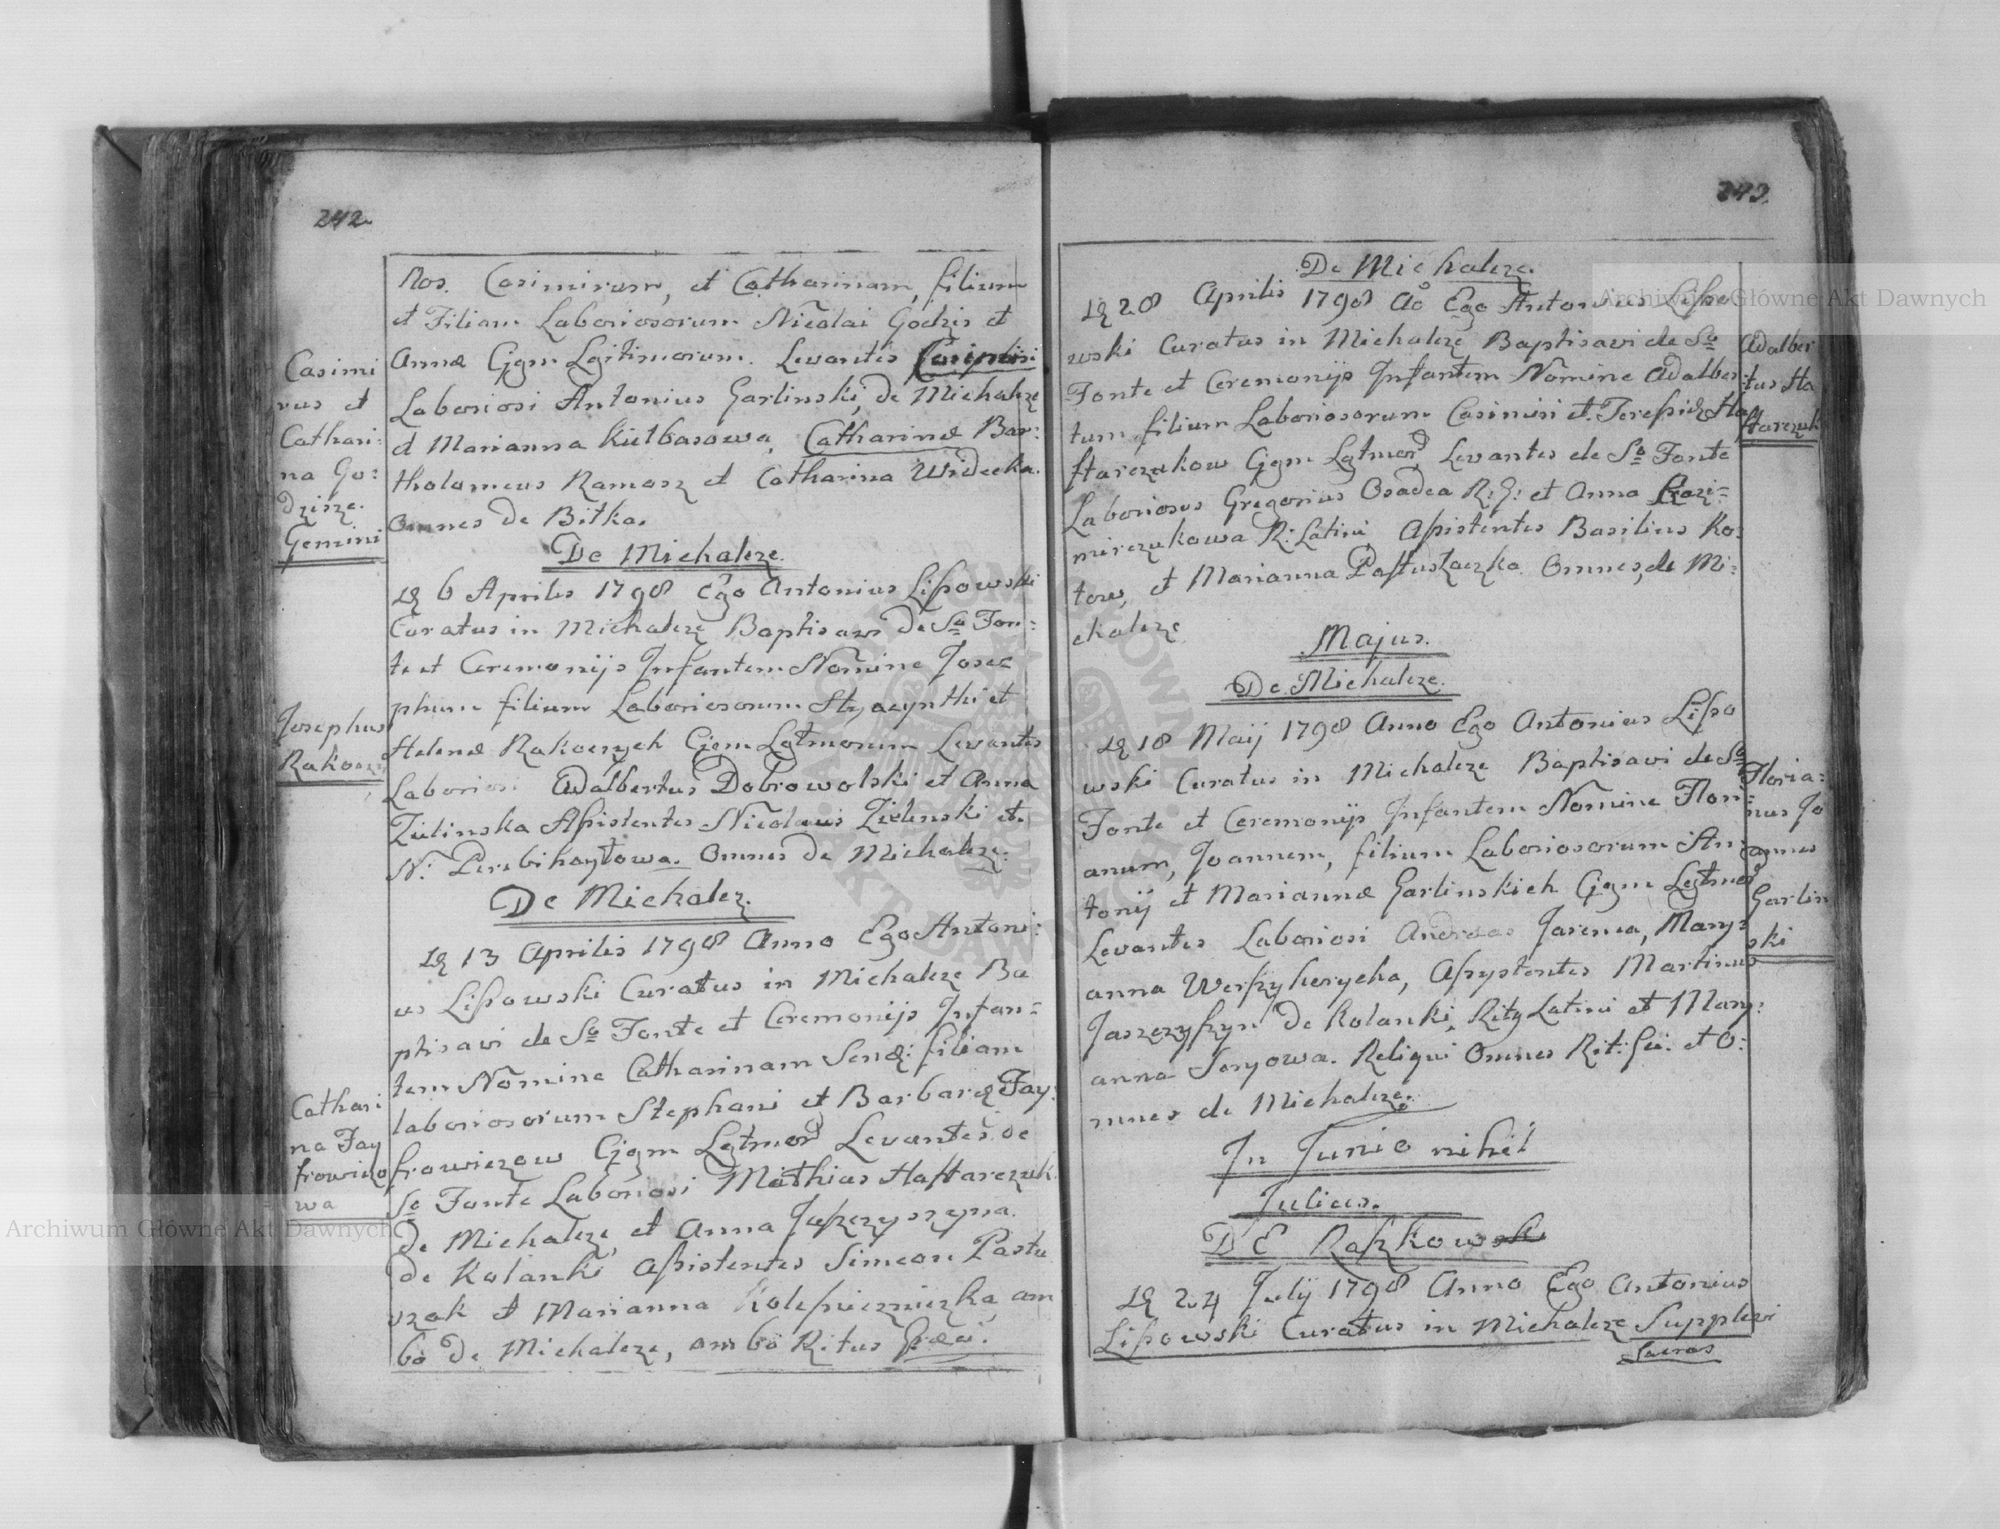 242.
Nos. Casimirum, et Catharinam, filium
et Filiam Laboriosorum Nicolai Godzis et
Annæ Cjgm Lgitimorum. Levantes Casimiri
Laboriosi Antonius Garlinski, de Michalcze
et Marianna Kiełbasowa, Catharinæ Bar:
tholomeus Ramasz et Catharina Widecka.
Omnes de Bitka.
Casimi
rus et
Cathari:
na Go:
dzisze.
Gemini
De Michalcze.
6 Aprilis 1798 Ego Antonius Lissowski
Curatus in Michalcze Baptisavi De So Fon:
te et Ceremonijs Infantem Nomine Jose
phum filium Laboriosorum Hyacynthi et
Helenæ Rakoczych Cjgm Lgtmorum Levantes
Laboriosi Adalbertus Dobrowolski et Anna
Zielinska Assistentes Nicolaus Zielinski et
N: Perebihaytowa. Omnes de Michalcze.
Josephus
Rakoczy
De Michalcz.
13 Aprilis 1798 Anno Ego Antoni:
us Lissowski Curatus in Michalcze Ba
ptisavi de So Fonte et Ceremonijs Infan:
tem Nomine Catharinam filiam
laboriosorum Stephani et Barbaræ Fay:
frowiczow Cjgm Lgtmor Levantes de
So Fonte Laboriosi Mathias Haftarczuk
de Michalcze et Anna
de Kolanki Assistentes Simeon Pastu
szak et Marianna am
bo de Michalcze, ambo Ritus
Cathari
na Fay
frowiczo
wa
243.
De Michalcze.
28 Aprilis 1798 Ao Ego Antonius Lisso
wski Curatus in Michalcze Baptisavi de So
Fonte et Ceremonijs Infantem Nomine Adalber
tum filium Laboriosorum Casimiri et Teressiæ Ha
ftarczukow Cjgm Lgtmor Levantes de So Fonte
Laboriosus Gregorius Osadca R: G: et Anna Kazi=
mirczukowa R: Latini Assistentes Basilius Ko:
tow, et Marianna Pastuszaczka Omnes, de Mi:
chalcze
Adalber
tus Ha
ftarczuk
Majus.
De Michalcze.
18 Maij 1798 Anno Ego Antonius Lisso
wski Curatus in Michalcze Baptisavi de So
Fonte et Ceremonijs Infantem Nomine Flori:
anum, Joannem, filium Laboriosorum An:
tonij et Mariannæ Garlinskich Cjgm Lgtmor
Levantes Laboriosi Andreas Jarema, Mary:
anna Assystentes Martinus
de Kolanki, Ritg Latini et Mary:
anna Seryowa. Reliqui Omnes Rit: et O:
mnes de Michalcze.
Floria:
nus Jo
annes
Garlin
ski
In Junio nihil
Julius.
DE Raszkow
24 July 1798 Anno Ego Antonius
Lissowski Curatus in Michalcze Supplevi
Sacras
Archiwum Główne Akt Dawnych
Archiwum Główne Akt Dawnych